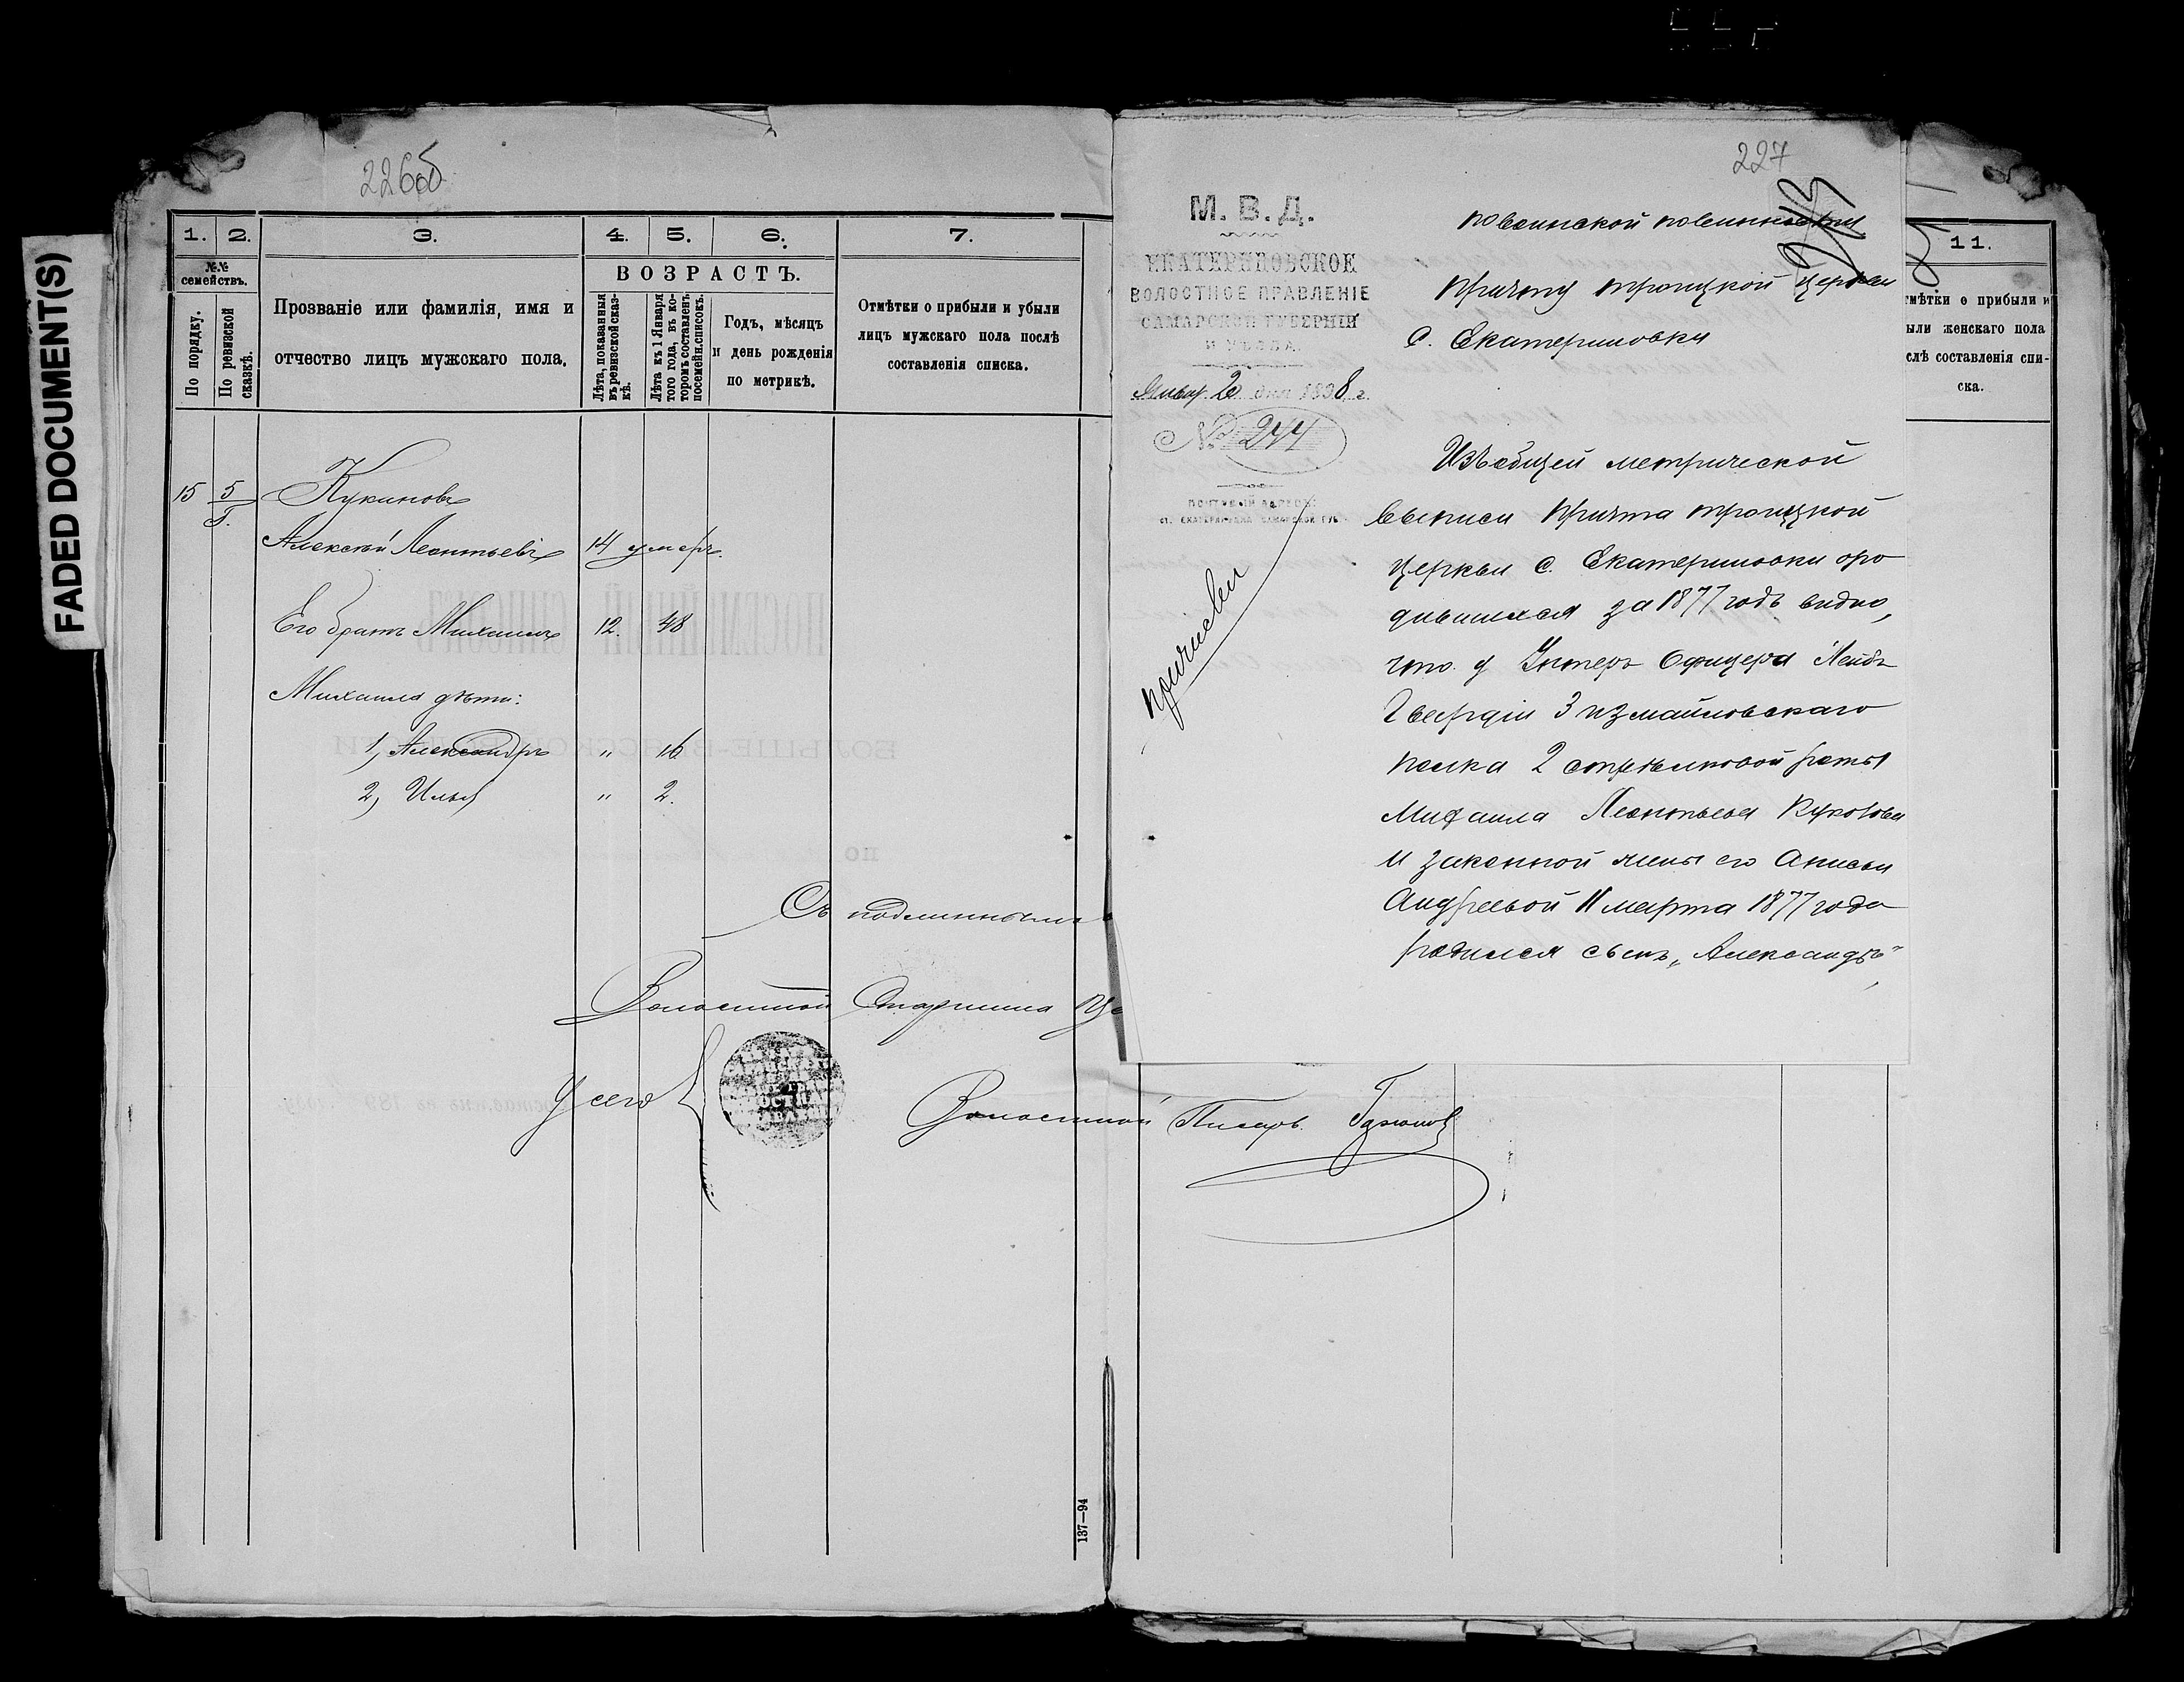 FADED DOCUMENT(S)
226об
1. 2. 3. 4. 5. 6. 7.
№№ семействъ.
По порядку.
По ревизской сказкѣ.
Прозваніе или фамилія, имя и
отчество лицъ мужскаго пола.
ВОЗРАСТЪ.
Лѣта, показанныя въ ревизской сказкѣ.
Лѣта къ 1 Января того года, въ которомъ составленъ посемейн. списокъ.
Годъ, мѣсяцъ
и день рожденія
по метрикѣ.
Отмѣтки о прибыли и убыли
лицъ мужскаго пола послѣ
составленія списка.
15 5
Кукановъ
Алексѣй Леонтьевъ 14 умеръ.
Его братъ Михаилъ 12. 48
Михаила дѣти:
1, Александръ " 16
2, Илья " 2.
Съ подлиннымъ
Волостной Старшина
Волостной Писарь
137—94
227
М. В. Д.
ЕКАТЕРИНОВСКОЕ
ВОЛОСТНОЕ ПРАВЛЕНІЕ
САМАРСКОЙ ГУБЕРНІИ
И УѢЗДА.
Январ. 20 дня 1898 г.
№ 244
ПОЧТОВЫЙ АДРЕСЪ:
По воинской повинности
Причту троицкой церкви
с. Екатериновки
Изъ общей метрической
выписи причта троицкой
церкви с. Екатериновки оро
дившихся за 1877 годъ видно,
что у Унтеръ Офицера Лейбъ
Гвардіи 3 измайловскаго
полка 2 стрѣлковой роты
Михаила Леонтьева
и законной жены его Анисьи
Андреевой 11 марта 1877 года
родился сынъ „Александръ"
11.
Отмѣтки о прибыли и
были женскаго пола
слѣ составленія спи-
ска.